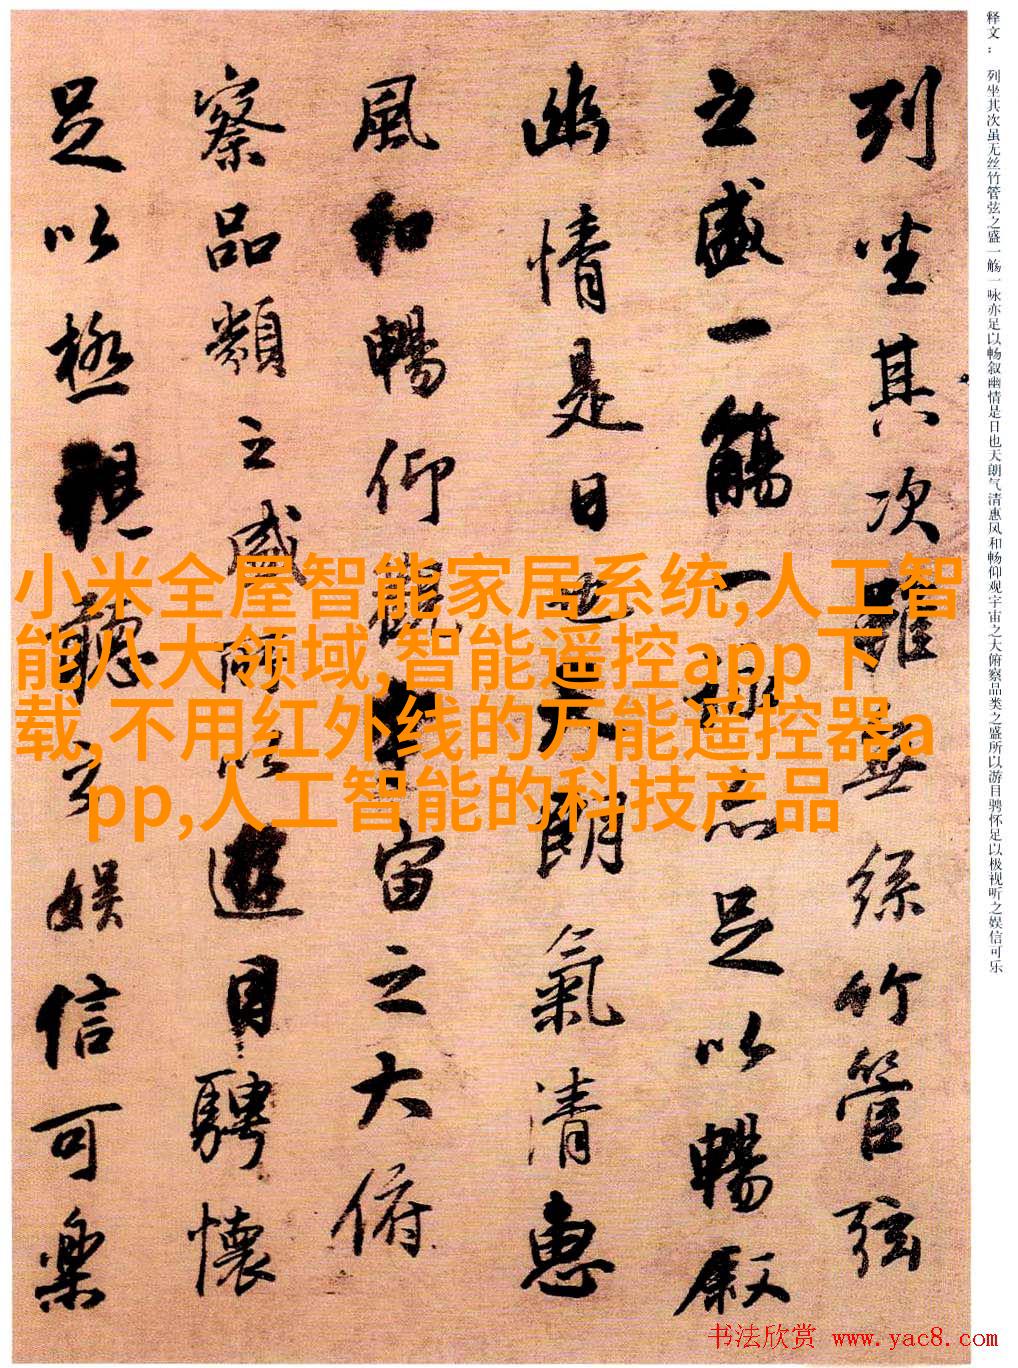 释文： 列坐其次虽无丝竹管弦之盛一觞一咏亦足以畅叙幽情是日也天朗气清惠风和畅仰观宇宙之大俯察品类之盛所以游目骋怀足以极视听之娱信可乐
列坐其次雖無絲竹管弦
之盛一觴一詠亦足以暢叙
幽情是日也天朗氣清惠
風和暢仰觀宇宙之大俯
察品類之盛所以遊目騁懷
足以極視聽之娱信可樂
小米全屋智能家居系统,人工智
能八大领域,智能遥控app下
载,不用红外线的万能遥控器a
pp,人工智能的科技产品
书法欣赏 www.yac8.com